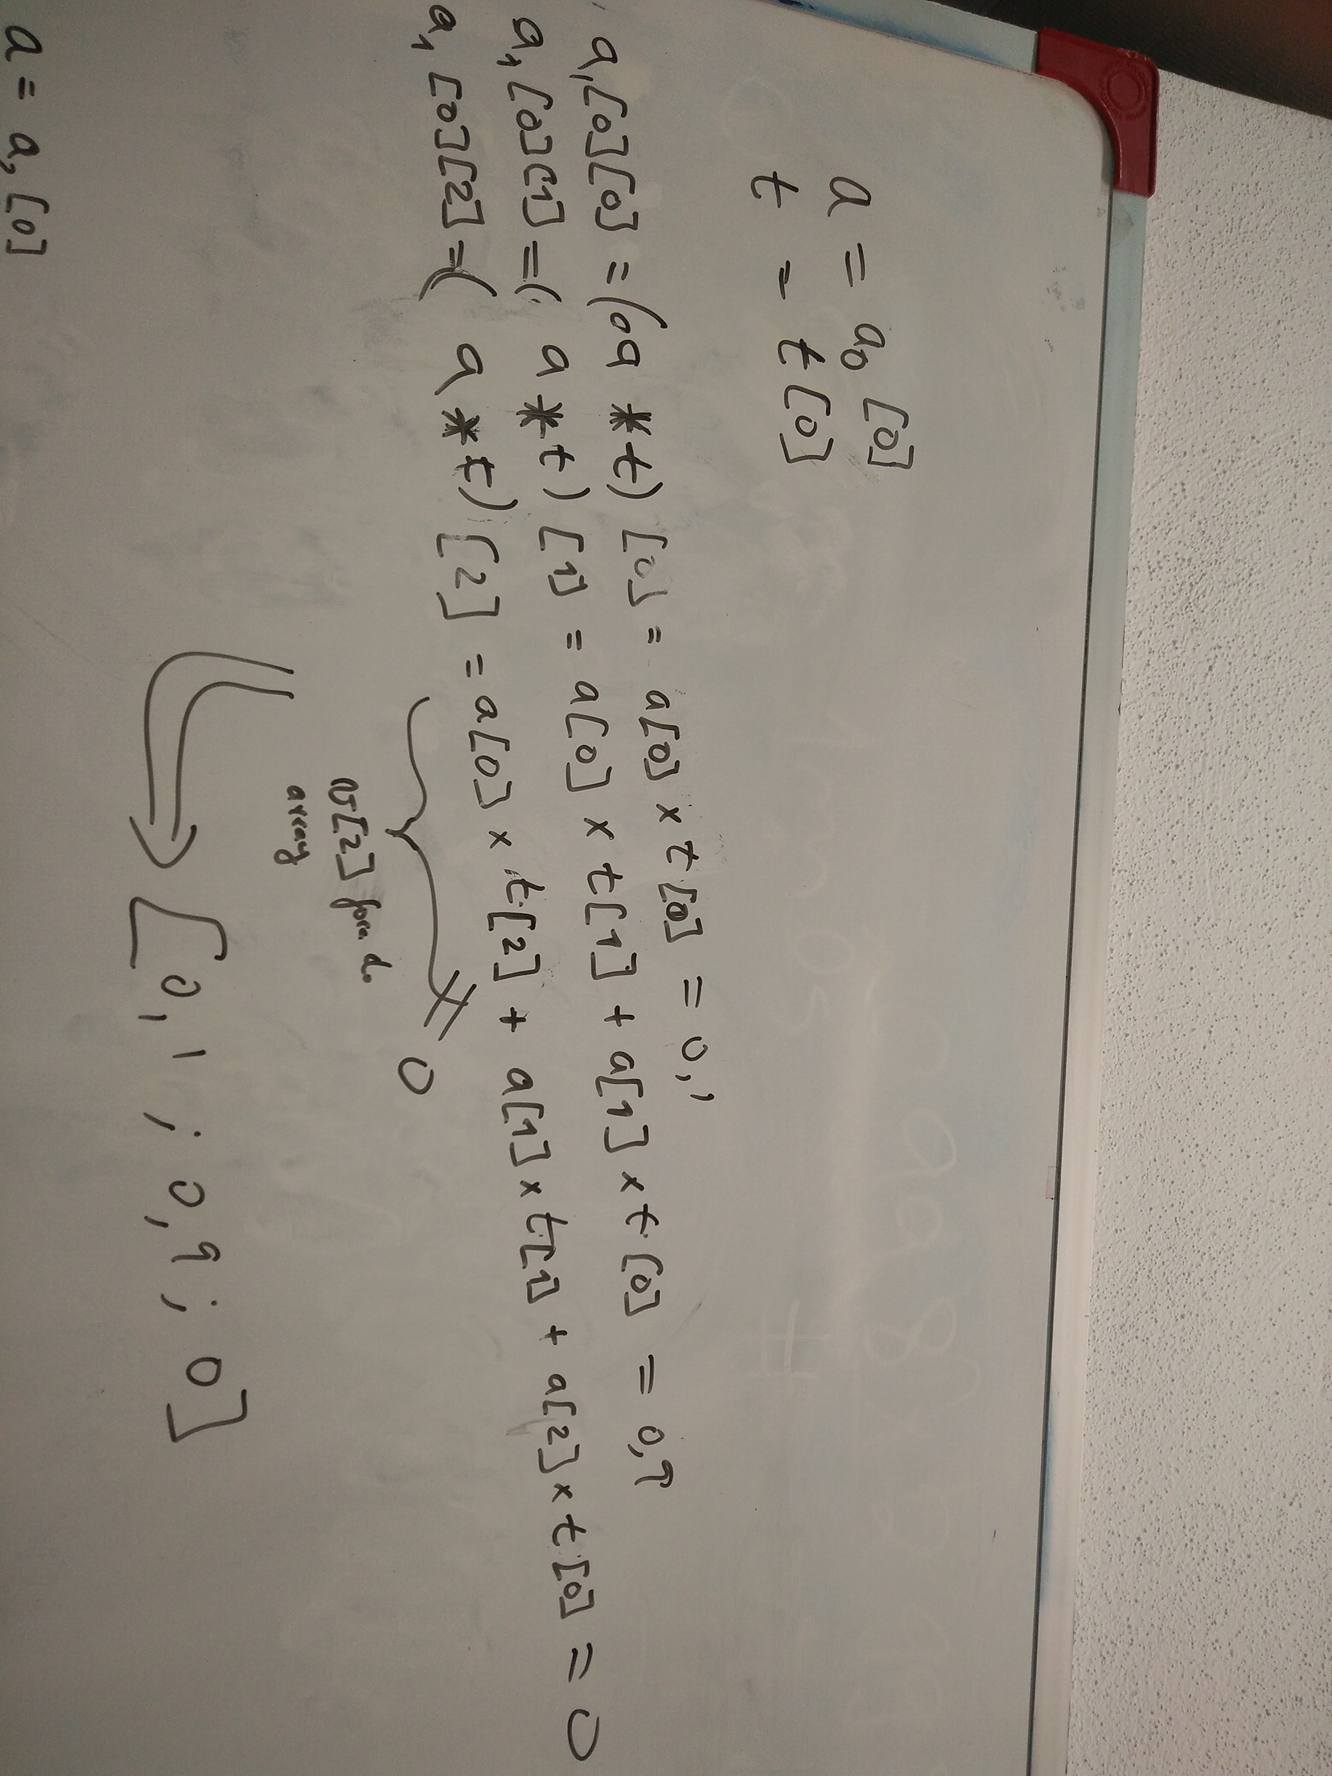 a = a₀[0]
t = t[0]
a₁[0][0] = (a * t)[0] = a[0] × t[0] = 0,1
a₁[0][1] = (a * t)[1] = a[0] × t[1] + a[1] × t[0] = 0,9
a₁[0][2] = (a * t)[2] = a[0] × t[2] + a[1] × t[1] + a[2] × t[0] = 0
≠ 0
[2] fora do
array
[0,1 ; 0,9 ; 0]
a = a₁[0]